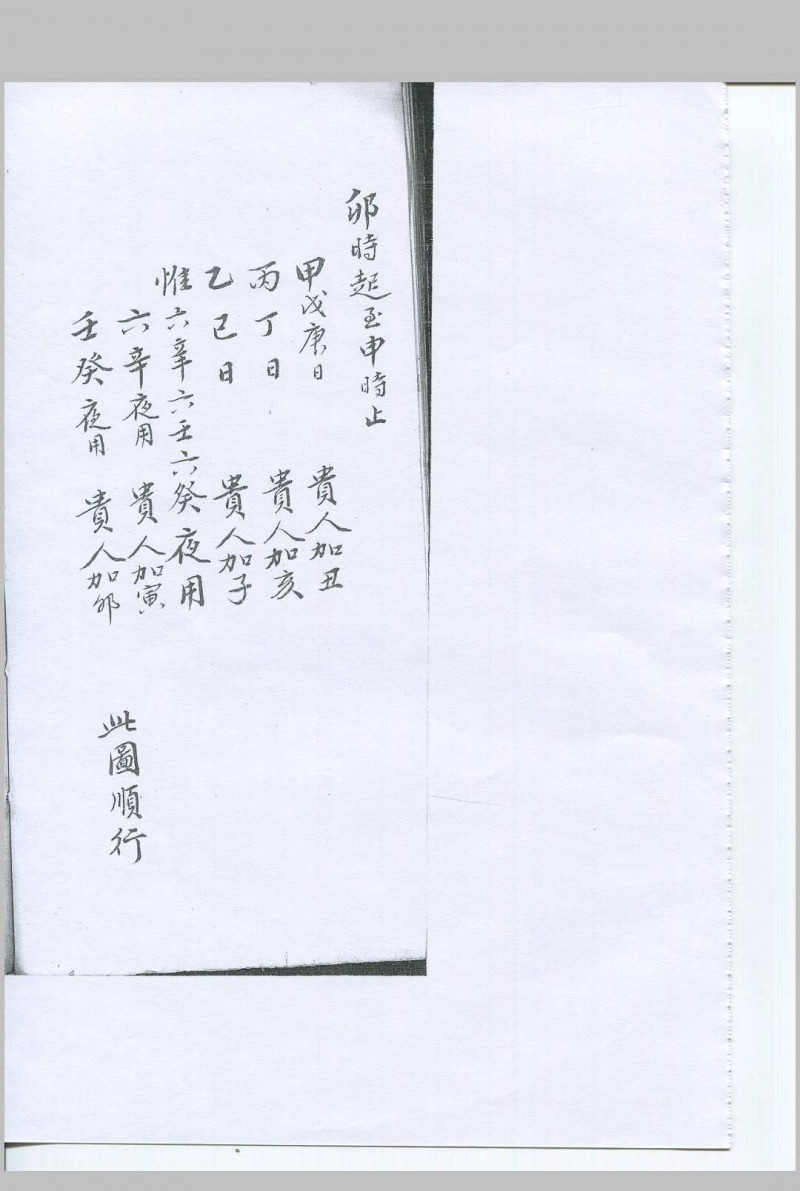 卯時起至申時止
甲戊庚日 貴人加丑
丙丁日 貴人加亥
乙己日 貴人加子
惟六辛六壬六癸夜用
六辛夜用 貴人加寅
壬癸夜用 貴人加卯
此圖順行